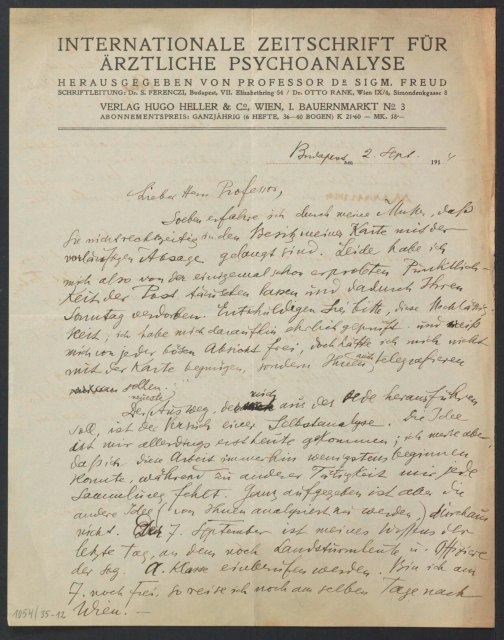 INTERNATIONALE ZEITSCHRIFT FÜR
ÄRZTLICHE PSYCHOANALYSE
HERAUSGEGEBEN VON PROFESSOR DR SIGM. FREUD
SCHRIFTLEITUNG: Dr. S. FERENCZI, Budapest, VII. Elisabethring 54 / Dr. OTTO RANK, Wien IX/4, Simondenkgasse 8
VERLAG HUGO HELLER & Co, WIEN, I. BAUERNMARKT No 3
ABONNEMENTSPREIS: GANZJÄHRIG (6 HEFTE, 36—40 BOGEN) K 21·60 — MK. 18·—
Budapest am 2. Sept. 1914
Lieber Herr Professor,
Soeben erfahre ich durch meine Mutter, daß
Sie nicht rechtzeitig in den Besitz meiner Karte mit der
vorläufigen Absage gelangt sind. Leider habe ich
mich also von der einigemal schon erprobten Pünktlich-
keit der Post täuschen lassen und dadurch Ihren
Sonntag verdorben. Entschuldigen Sie bitte diese Nachlässig-
keit, ich habe mich daraufhin ehrlich geprüft und weiß
mich von jeder bösen Absicht frei, doch hätte ich mich nicht
mit der Karte begnügen, sondern Ihnen auch telegrafieren
sollen.
Der neueste Ausweg, der mich aus der Oede herausführen
soll, ist der Versuch einer Selbstanalyse. Die Idee
ist mir allerdings erst heute gekommen; ich merke aber,
daß ich diese Arbeit immerhin wenigstens beginnen
konnte, während zu anderer Tätigkeit mir jede
Sammlung fehlt. Ganz aufgegeben ist aber die
andere Idee (von Ihnen analysiert zu werden) durchaus
nicht. Der 7. September ist meines Wissens der
letzte Tag, an dem noch Landsturmleute u. Offiziere
der sog. A. Klasse einberufen werden. Bin ich am
7. noch frei, so reise ich noch am selben Tage nach
Wien! —
1054/35-12